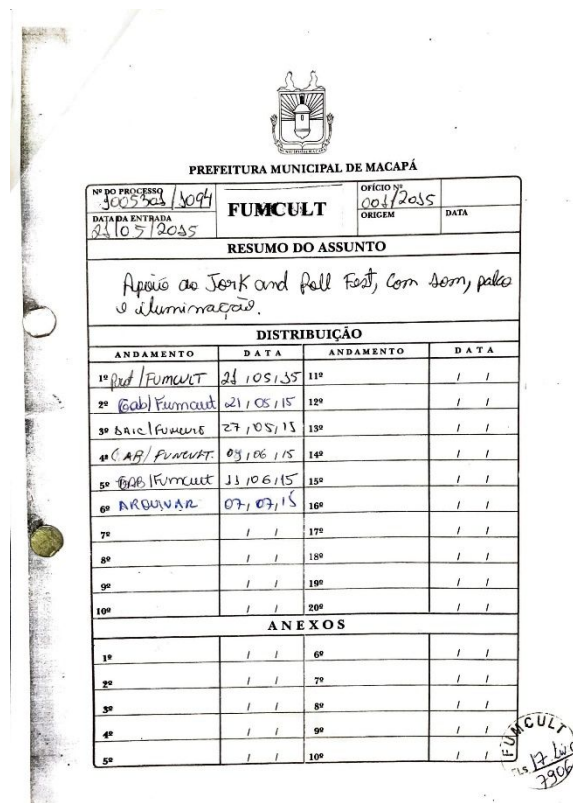 PREFEITURA MUNICIPAL DE MACAPÁ
Nº DO PROCESSO
DATA DA ENTRADA
21/05/2015
FUMCULT
OFÍCIO Nº
001/2015
ORIGEM
DATA
RESUMO DO ASSUNTO
Apoio ao Jork and Roll Fest, com som, palco
e iluminação.
DISTRIBUIÇÃO
ANDAMENTO DATA ANDAMENTO DATA
1º Prot/FUMCULT 21/05/15 11º / /
2º Gab/Fumcult 21/05/15 12º / /
3º 27/05/15 13º / /
4º GAB/FUMCULT. 09/06/15 14º / /
5º GAB/Fumcult 11/06/15 15º / /
6º ARQUIVAR 07/07/15 16º / /
7º / / 17º / /
8º / / 18º / /
9º / / 19º / /
10º / / 20º / /
ANEXOS
1º / / 6º / /
2º / / 7º / /
3º / / 8º / /
4º / / 9º / /
5º / / 10º / /
FUMCULT
FLS 17
7906